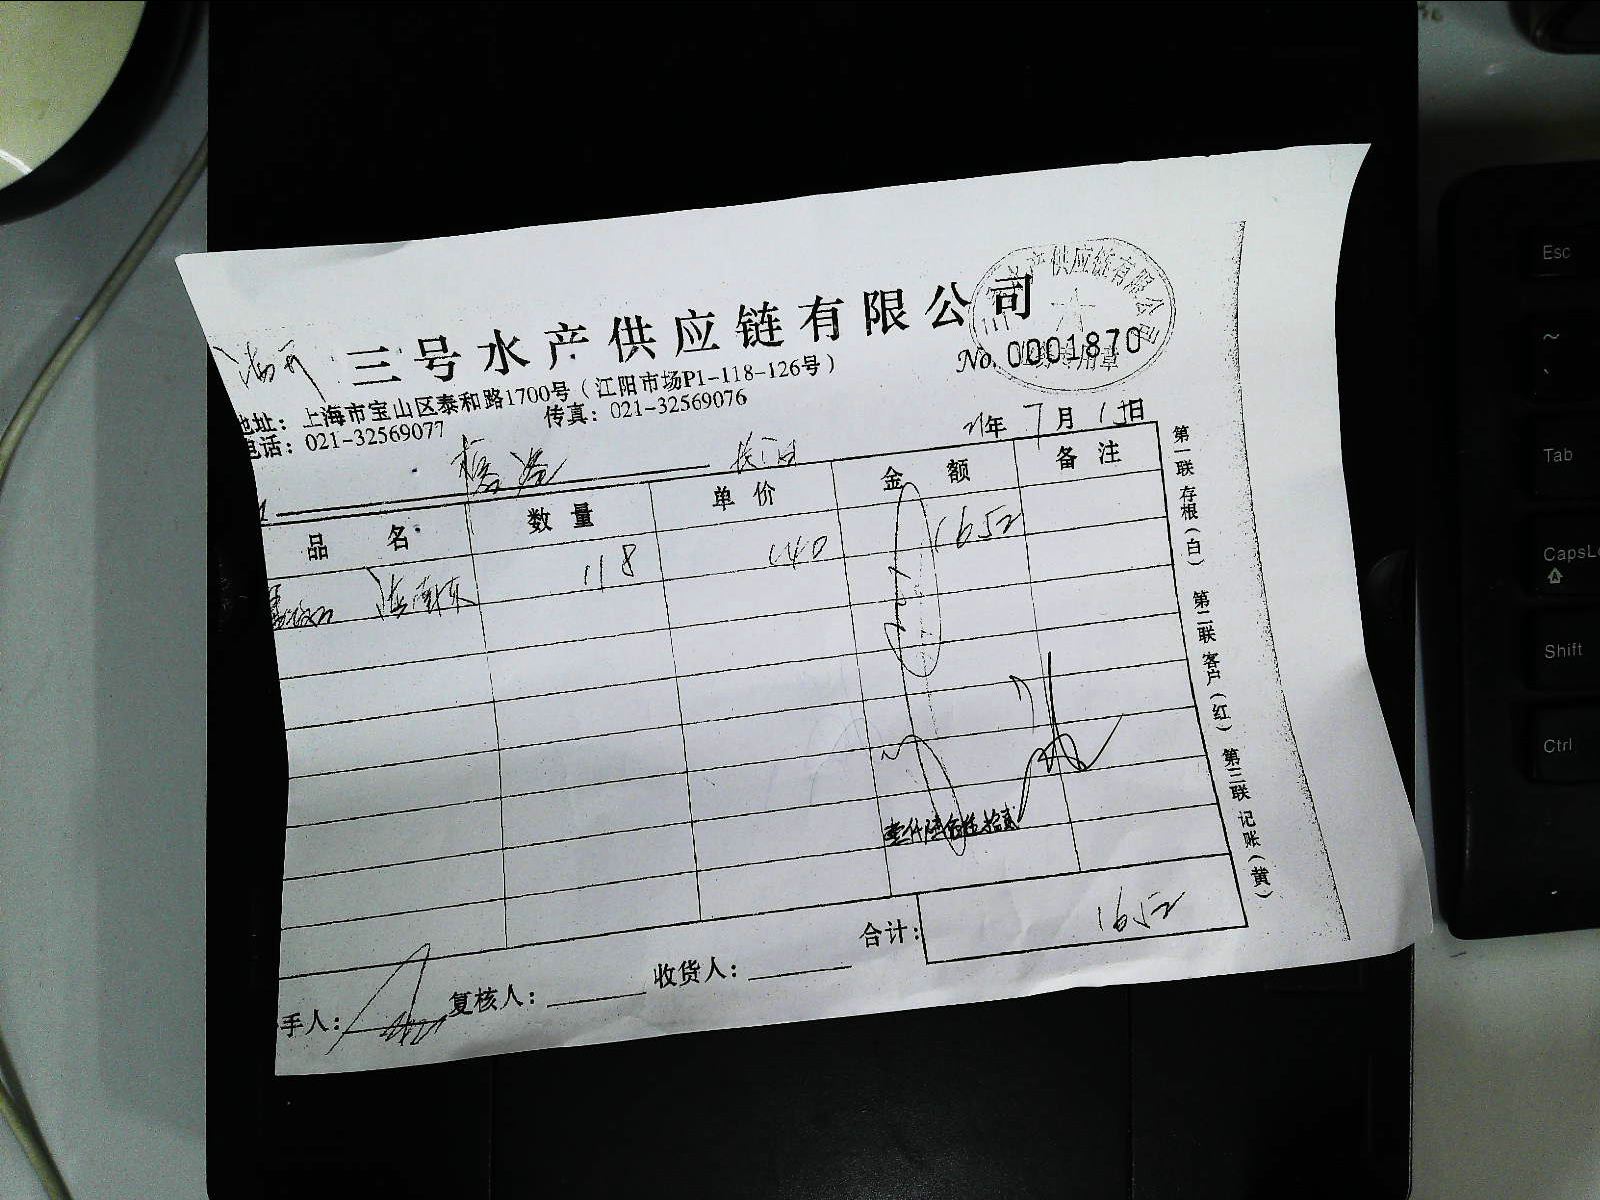 三号水产供应链有限公司
产供应链有限公司
No. 0001870
专用章
地址：上海市宝山区泰和路1700号（江阳市场P1-118-126号）
电话：021-32569077 传真：021-32569076
21年 7月 15日
品 名 数 量 单 价 金 额 备 注
118 140 1652
壹仟陆佰伍拾贰
合计：1652
手人： 复核人： 收货人：
第一联 存根（白） 第二联 客户（红） 第三联 记账（黄）
Esc
~
Tab
CapsLo
Shift
Ctrl